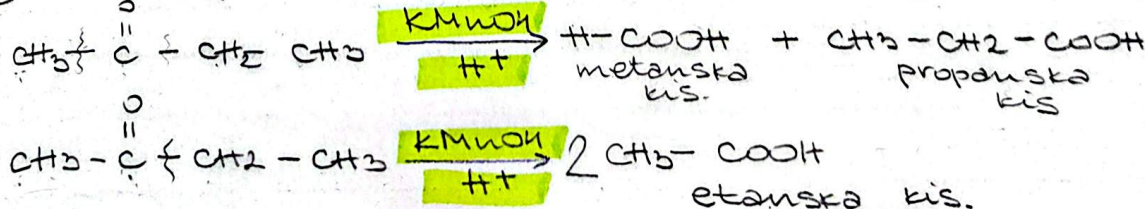 O
CH3 - C - CH2 CH3 KMnO4 H+ H-COOH + CH3-CH2-COOH
metanska kis. propanska kis
O
CH3 - C - CH2 - CH3 KMnO4 H+ 2 CH3- COOH
etanska kis.